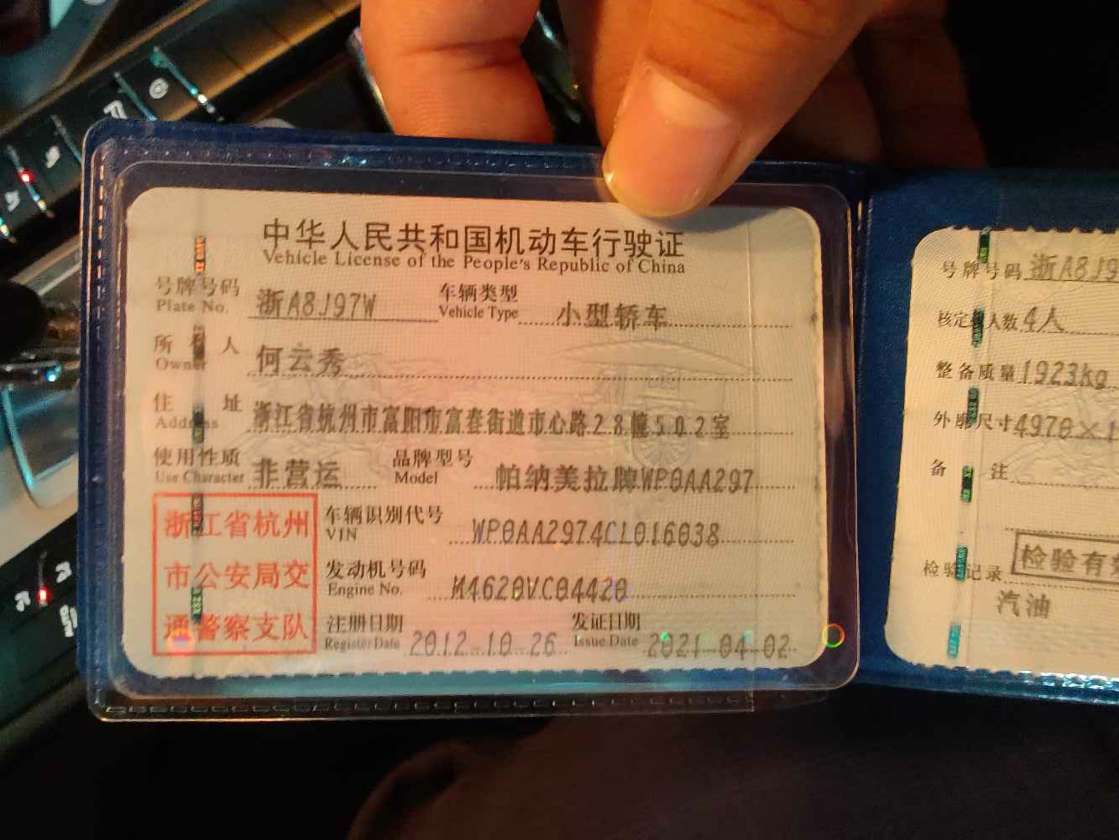 中华人民共和国机动车行驶证
Vehicle License of the People's Republic of China
号牌号码 浙A8J97W 车辆类型 小型轿车
Plate No. Vehicle Type
所有人 何云秀
Owner
住址 浙江省杭州市富阳市富春街道市心路28幢502室
Address
使用性质 非营运 品牌型号 帕纳美拉牌WP0AA297
Use Character Model
浙江省杭州
市公安局交
通警察支队
车辆识别代号 WP0AA2974CL016038
VIN
发动机号码 M4620VC04420
Engine No.
注册日期 2012-10-26 发证日期 2021-04-02
Register Date Issue Date
号牌号码 浙A8J9
核定 人数 4人
整备质量 1923kg
外廓尺寸 4970×1
备注
检验记录 检验有效
汽油